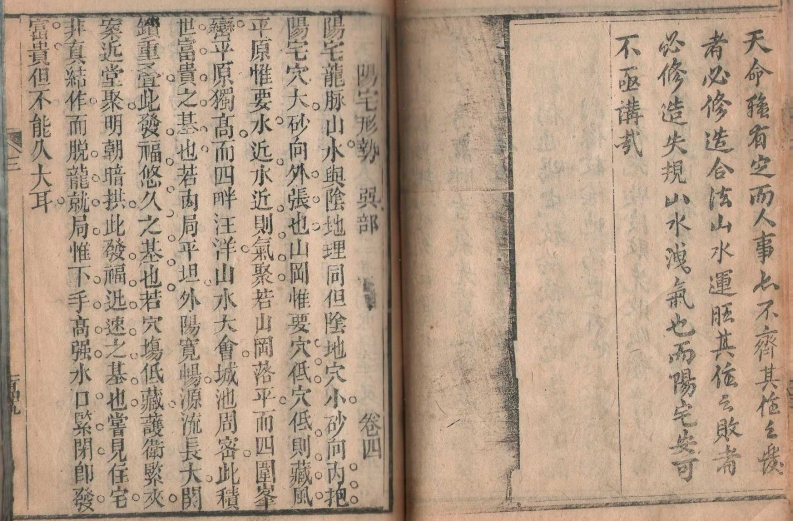 天命雖有定而人事也不齊其住之發
者必修造合法山水運旺其住之敗者
必修造失規山水洩氣也而陽宅安可
不亟講哉
陽宅形勢 部 卷四
陽宅龍脉山水與陰地理同但陰地穴小砂向內抱
陽宅穴大砂向外張也山岡惟要穴低穴低則藏風
平原惟要水近水近則氣聚若山岡落平而四圍峯
巒平原獨高而四畔汪洋山水大會城池周密此積
世富貴之基也若內局平坦外陽寬暢源流長大關
鎖重疊此發福悠久之基也若穴塲低藏護衛緊夾
案近堂聚明朝暗拱此發福迅速之基也嘗見住宅
非真結作而脫龍就局惟下手高强水口緊閉即發
富貴但不能久大耳